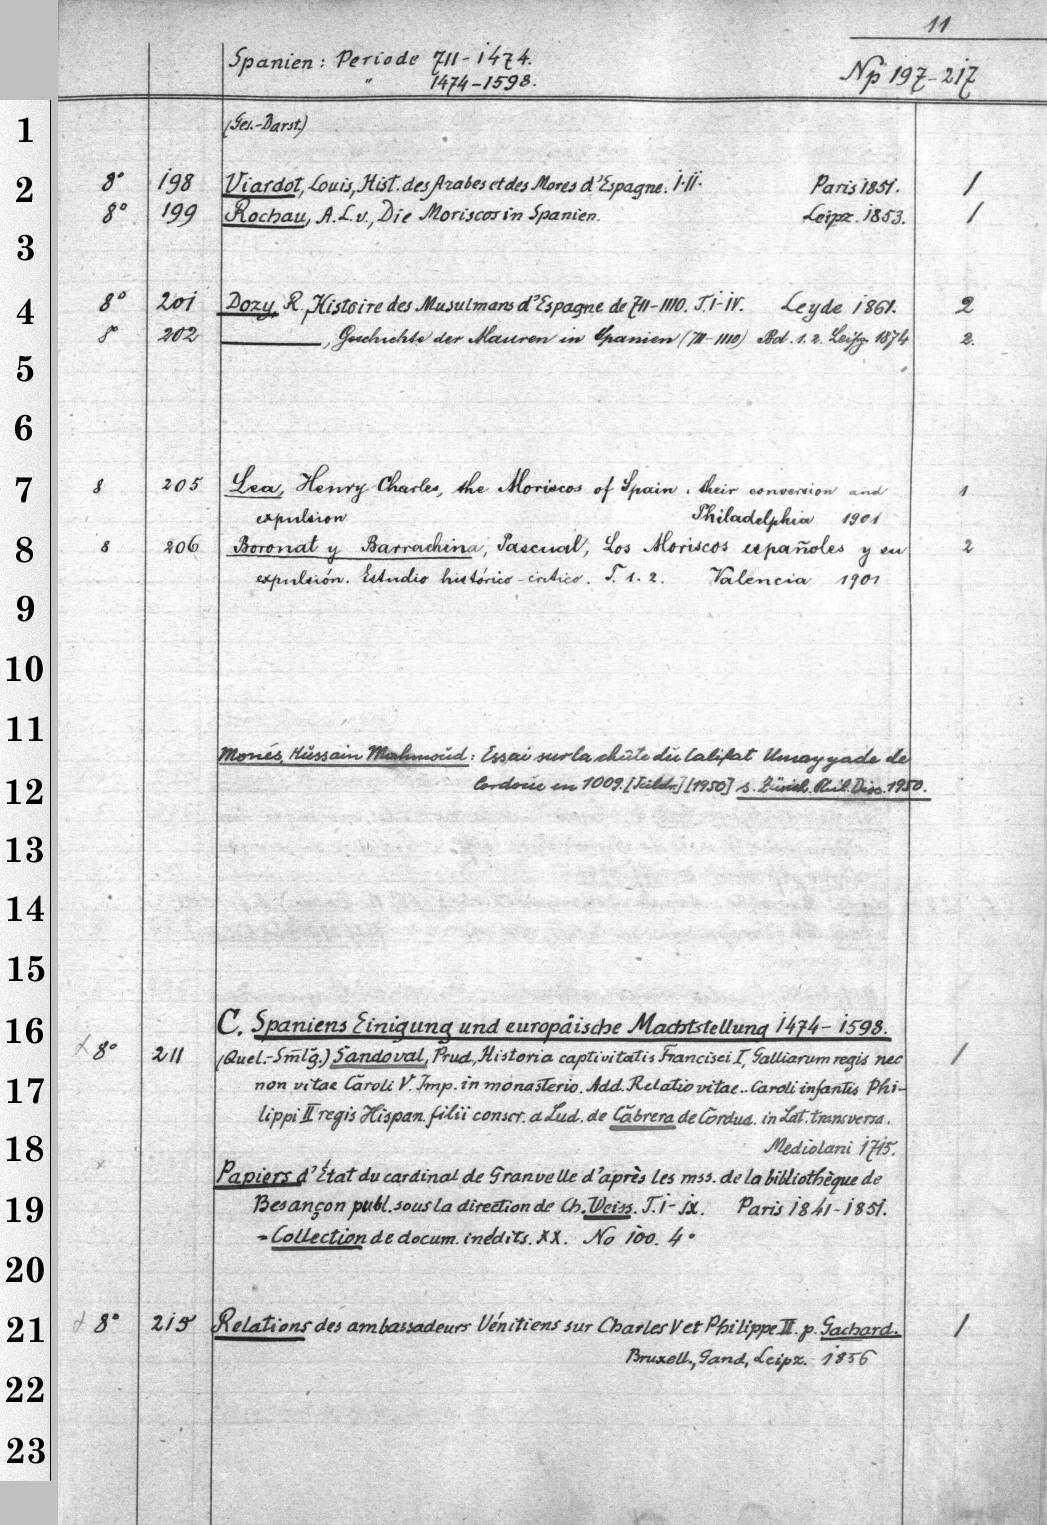 11
Spanien: Periode 711-1474.
" 1474-1598.
Np 197-217
1 (Ges.-Darst.)
2 8° 198 Viardot, Louis, Hist. des Arabes et des Mores d'Espagne. I-II. Paris 1851. 1
8° 199 Rochau, A.L.v., Die Moriscos in Spanien. Leipz. 1853. 1
3
4 8° 201 Dozy, R., Histoire des Musulmans d'Espagne de 711-1110. T.I-IV. Leyde 1861. 2
8° 202 ———, Geschichte der Mauren in Spanien (711-1110) Bd. 1.2. Leipz. 1874 2.
5
6
7 8 205 Lea, Henry Charles, the Moriscos of Spain, their conversion and 1
expulsion Philadelphia 1901
8 8 206 Boronat y Barrachina, Pascual, Los Moriscos españoles y su 2
expulsión. Estudio histórico-critico. T. 1.2. Valencia 1901
9
10
11
Monés, Hüssain Mahmoüd: Essai sur la chûte dü Califat Umayyade de
12 Cordoüe en 1009. [1950] s. Zürich. Phil. Diss. 1950.
13
14
15
16 C. Spaniens Einigung und europäische Machtstellung 1474-1598.
x 8° 211 (Quel.-Smlg.) Sandoval, Prud., Historia captivitatis Francisci I, Galliarum regis nec 1
17 non vitae Caroli V. Imp. in monasterio. Add. Relatio vitae.. Caroli infantis Phi-
lippi II regis Hispan. filii conscr. a Lud. de Cabrera de Cordua. in Lat. transversa.
18 Mediolani 1715.
x Papiers d'État du cardinal de Granvelle d'après les mss. de la bibliothèque de
19 Besançon publ. sous la direction de Ch. Weiss. T. I-IX. Paris 1841-1851.
= Collection de docum. inédits. XX. No 100. 4°
20
21 8° 215 Relations des ambassadeurs Vénitiens sur Charles V et Philippe II. p. Gachard. 1
Bruxell., Gand, Leipz. 1856
22
23